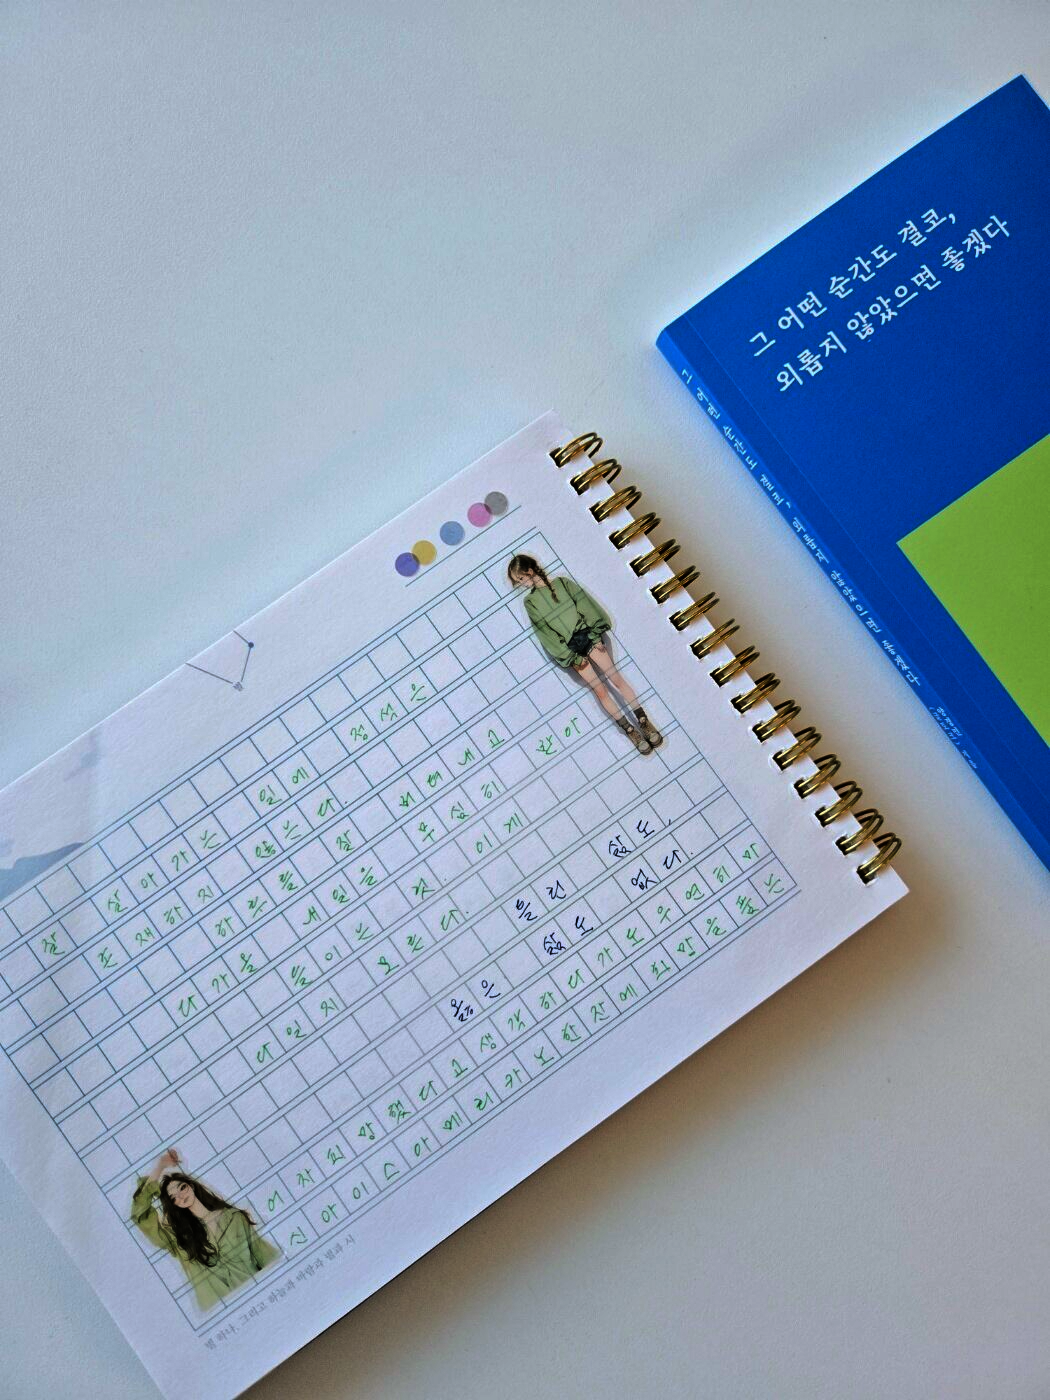 그 어떤 순간도 결코,
외롭지 않았으면 좋겠다
그 어떤 순간도 결코, 외롭지 않았으면 좋겠다
잘 살아가는 일에 정석은
존재하지 않는다.
하루를 잘 버텨내고
다가올 내일을 무심히 받아
들이는 것. 이게
다일지 모른다.
틀린 삶도,
옳은 삶도 없다.
어차피 망했다고 생각하다가도 우연히 마
신 아이스 아메리카노 한 잔에 희망을 품는
별 하나, 그리고 하늘과 바람과 별과 시